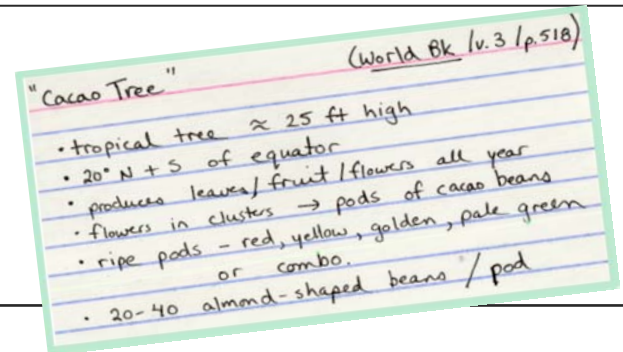 "Cacao Tree" (World Bk /v.3 /p.518)
• tropical tree ≈ 25 ft high
• 20° N + S of equator
• produces leaves/fruit/flowers all year
• flowers in clusters → pods of cacao beans
• ripe pods - red, yellow, golden, pale green
or combo.
• 20-40 almond-shaped beans / pod